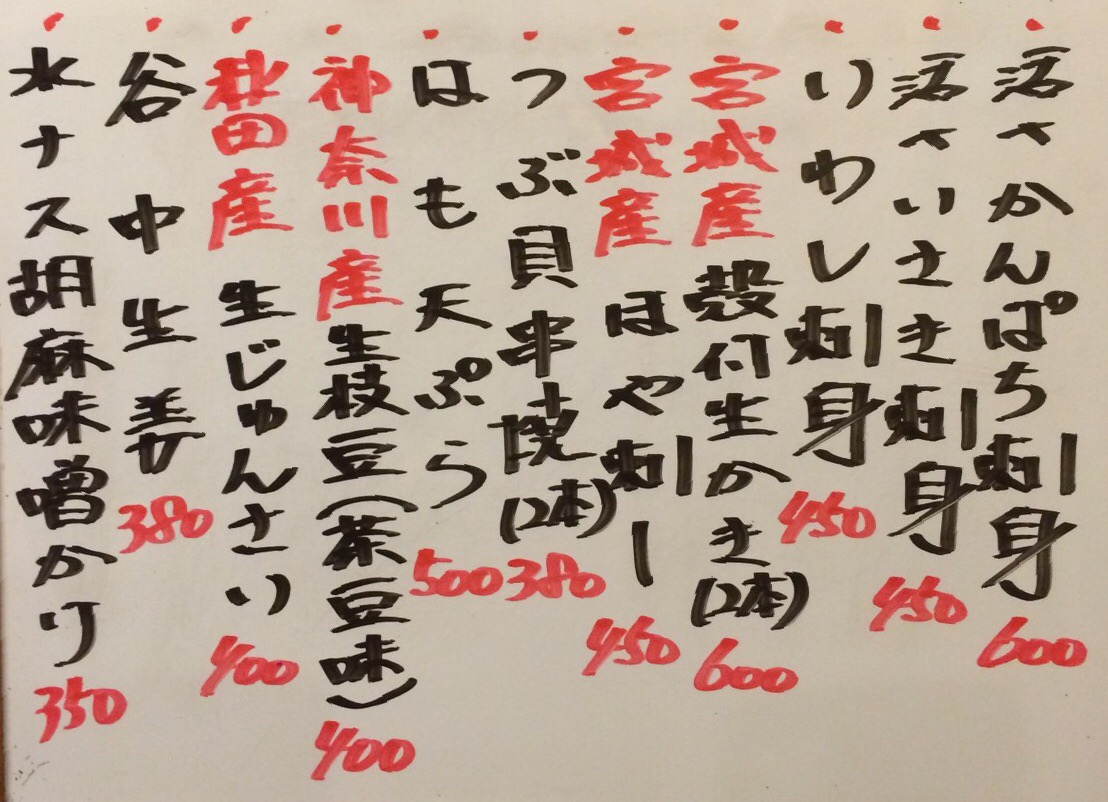 活〆かんぱち刺身 600
活〆いさき刺身 450
いわし刺身 450
宮城産 殻付生かき(2本) 600
宮城産 ほや刺し 450
つぶ貝串焼(2本) 380
はも天ぷら 500
神奈川産 生枝豆(茶豆味) 400
秋田産 生じゅんさい 400
谷中生姜 380
水ナス胡麻味噌かけ 350